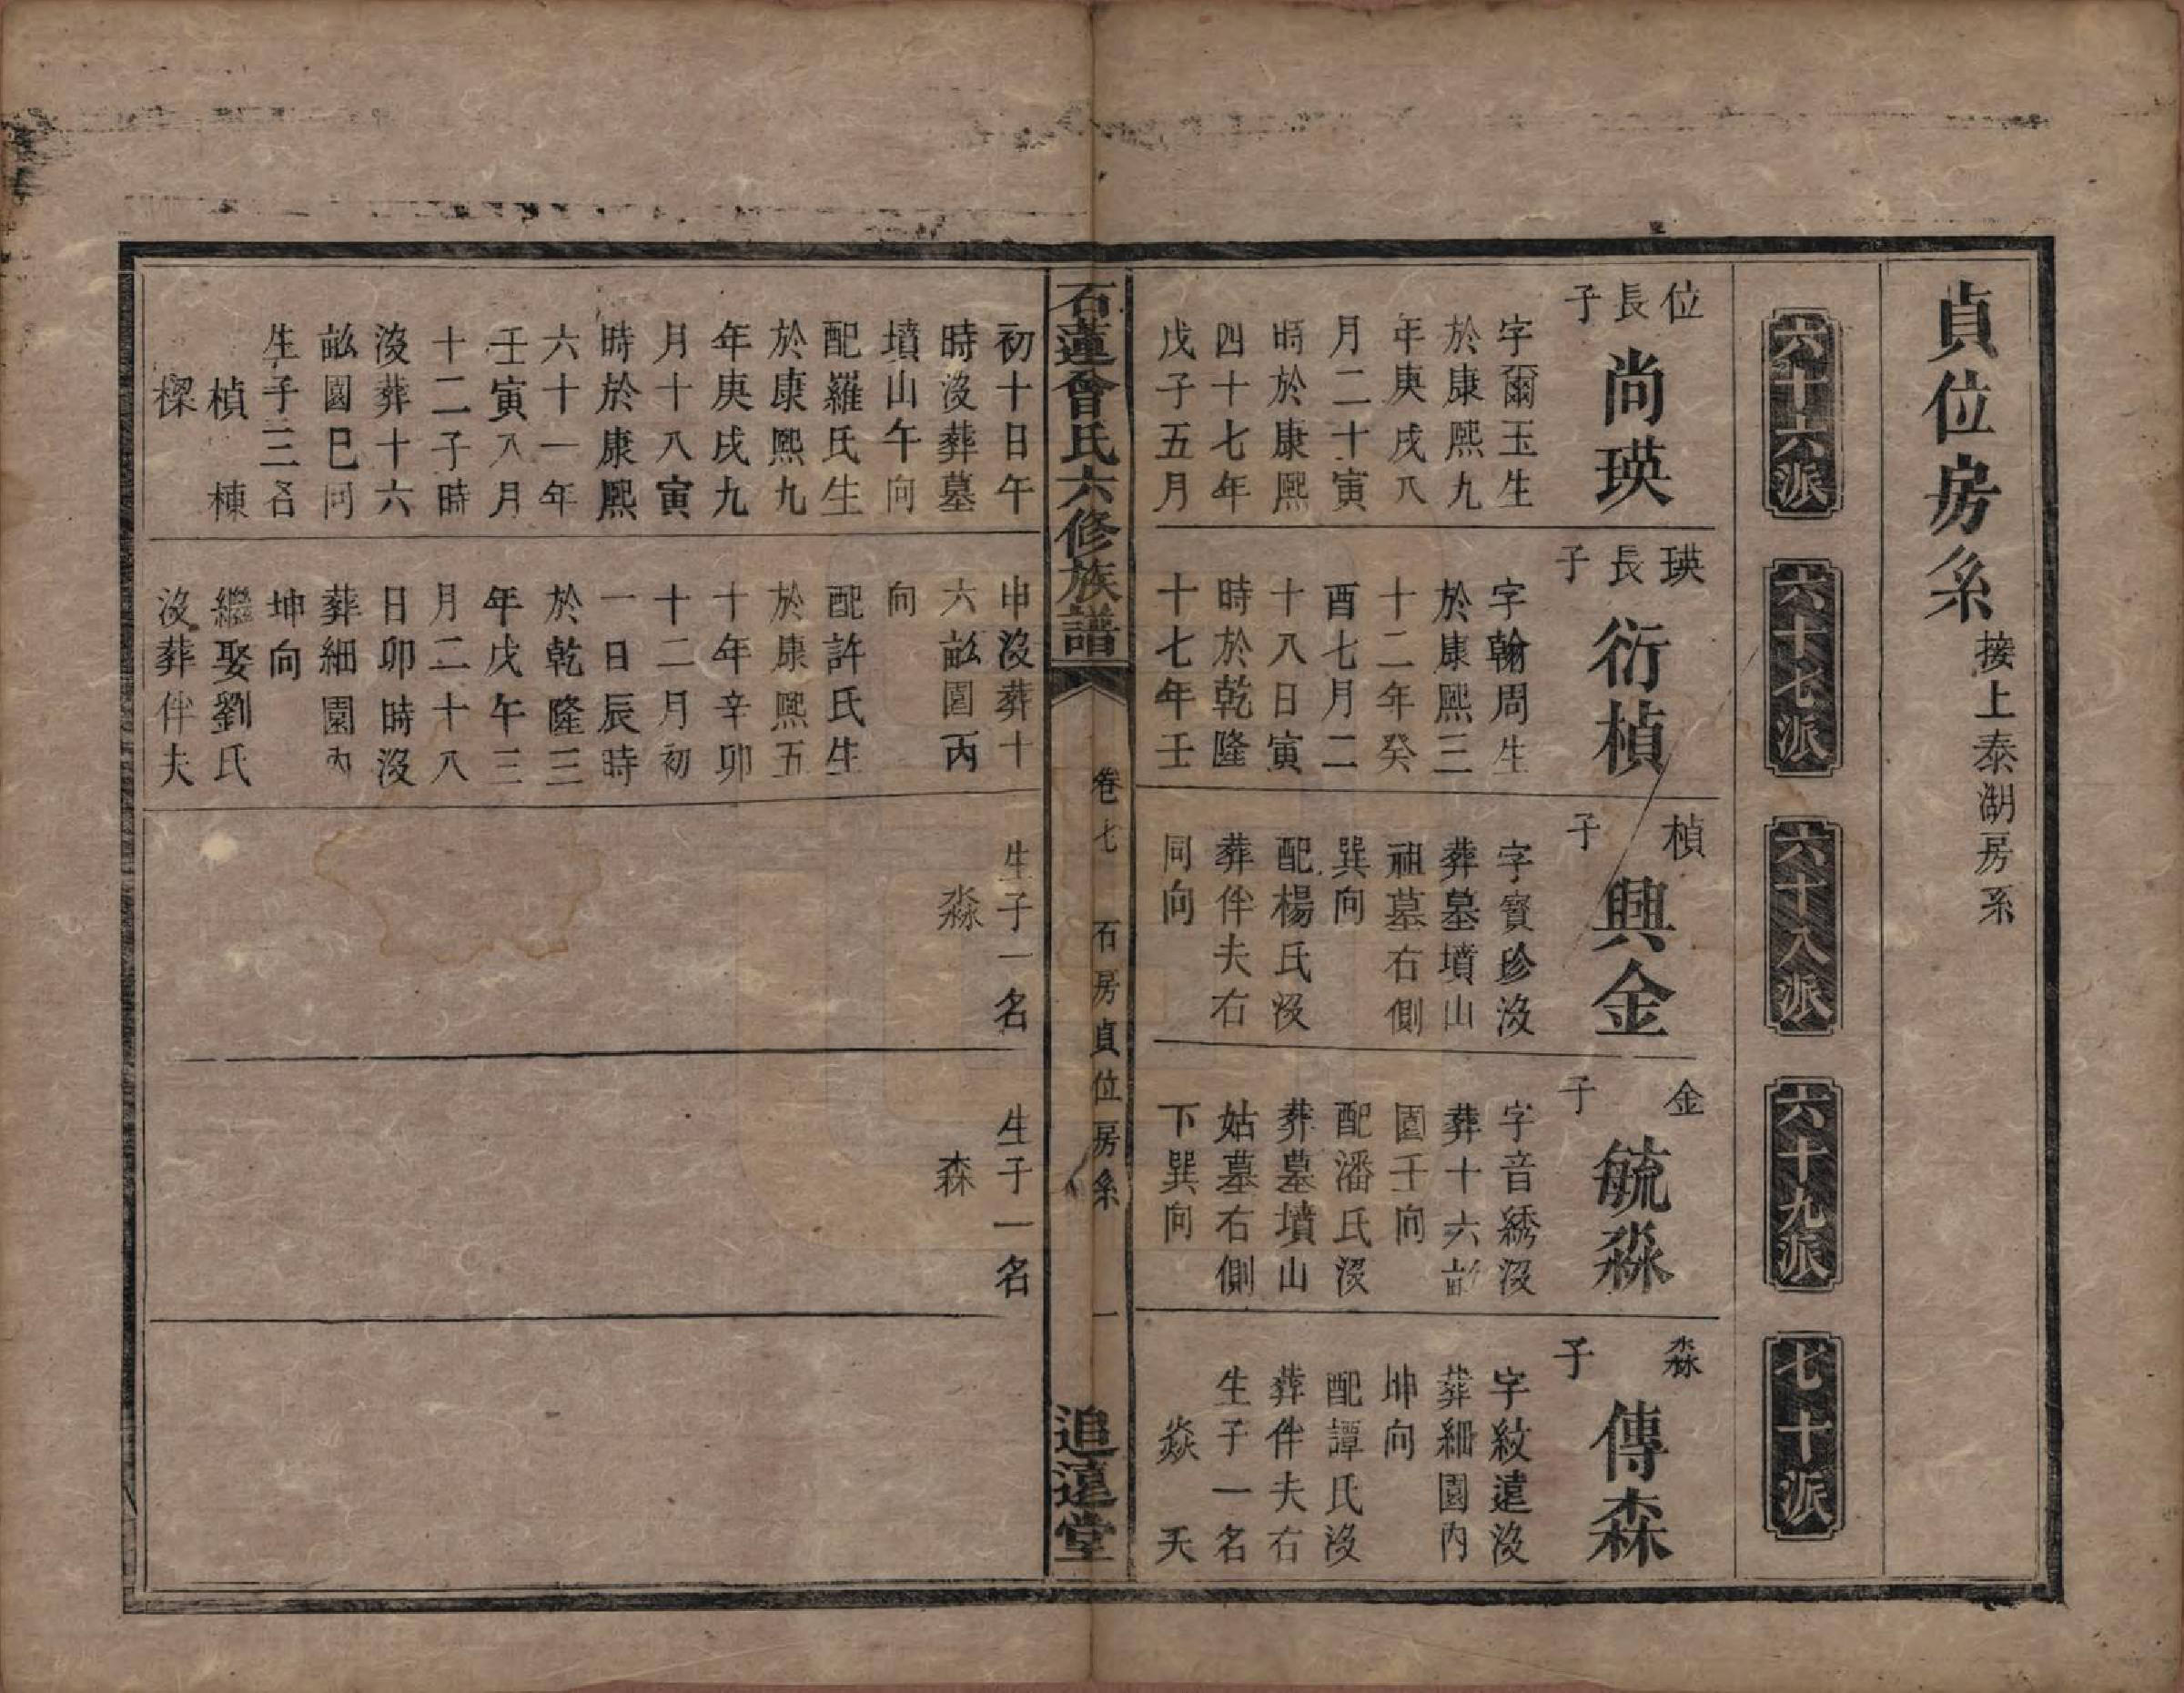 貞位房系接上泰湖房系
六十六派
六十七派
六十八派
六十九派
七十派
位長子
尚瑛
字爾玉生
於康熙九
年庚戌八
月二十寅
時於康熙
四十七年
戊子五月
初十日午
時沒葬墓
墳山午向
配羅氏生
於康熙九
年庚戌九
月十八寅
時於康熙
六十一年
壬寅八月
十二子時
沒葬十六
畝園巳向
生子三名
楨 棟
樑
瑛長子
衍楨
字翰周生
於康熙三
十二年癸
酉七月二
十八日寅
時於乾隆
十七年壬
申沒葬十
六畝園丙
向
配許氏生
於康熙五
十年辛卯
十二月初
一日辰時
於乾隆三
年戊午三
月二十八
日卯時沒
葬細園內
坤向
繼娶劉氏
沒葬伴夫
楨子
興金
字寶珍沒
葬墓墳山
祖墓右側
巽向
配楊氏沒
葬伴夫右
同向
生子一名
淼
金子
毓淼
字音綉沒
葬十六畝
園壬向
配潘氏沒
葬墓墳山
姑墓右側
下巽向
生子一名
森
淼子
傳森
字紋遠沒
葬細園內
坤向
配譚氏沒
葬伴夫右
生子一名
焱 夭
石蓮曾氏六修族譜
卷七 石房貞位房系 一
追遠堂